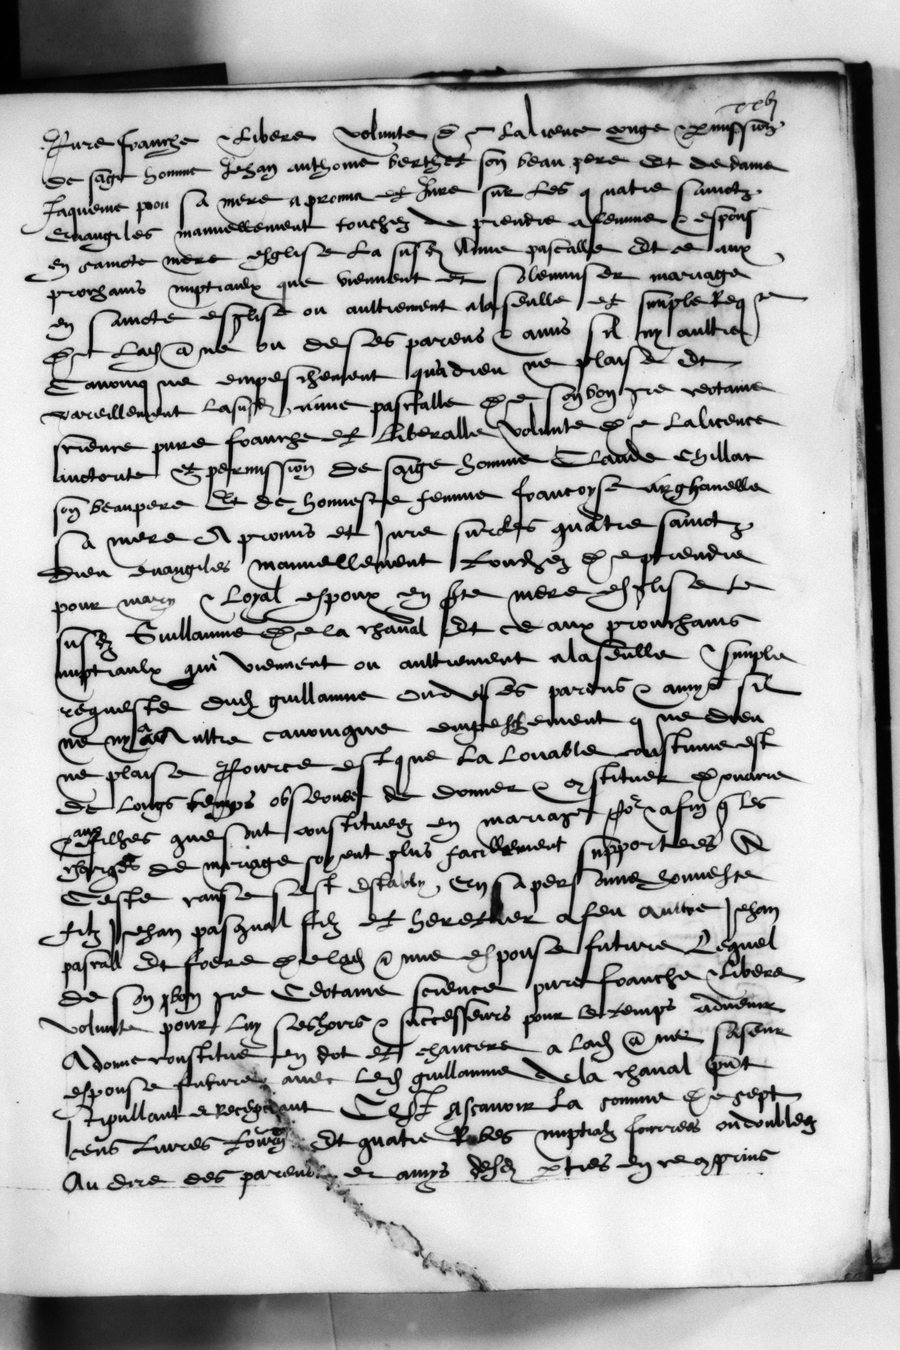 xxbj
Pure franche & libere volunte et de la licence conge & permission
de saige homme Jehan anthoine berthet son beau pere Et de dame
Jaqueme sa mere a promis et Jure sur les quatre sainctz
evangiles manuellement touchez de prendre a femme & espouse
en saincte mere esglise la susd Anne pascalle Et ce aux
prochains nuptiaulx que viennent et solemniser mariage
en saincte esglise ou aultrement a la seulle et simple Req^te
de lad anne ou de ses parens & amis sil ny aultre
Canonique empeschement qua dieu ne plaise Et
pareillement lasusd anne paschalle de son bon gre certaine
science pure franche et liberalle volunte et de la licence
auctorite et permission de saige homme Claude chillat
son beaupere Et de honneste femme francoyse
sa mere A promis et Jure sur les quatre sainctz
dieu evangiles manuellement touchez de prendre
pour mary & loyal espoux en ste mere esglise le
susd Guillaume de la chanal Et ce aux prouchains
nuptiaulx qui viennent ou aultrement a la seulle & simple
requeste dud guillaume ou de ses parens & amys sil
ne ny a Aultre canonique empeschement que dieu
ne plaise Pource est que la louable coustume est
de longs temps observee de donner & constituer douaire
aux filhes que sont constituez en mariage po^r & afin que les
charges de mariage soyent plus facillement supportees A
Ceste cause sest estably en sa personne honneste
filz Jehan pasqual filz et heretier a feu aultre Jehan
pascall Et frere de lad anne espouse future Lequel
de son bon gre Certaine science pure franche & libere
volunte pour luy ses hoirs & successeurs pour le temps advenir
A donne constitue en dot et chancere a lad anne sa seur
espouse future avec led guillaume de la chanal p^nt
stipullant et recepvant Cest Ascavoir la somme de sept
cens livres tourn Et quatre Robes nuptialz fourrees ou doublez
Au dire des parens et amys desd parties en ce comprins